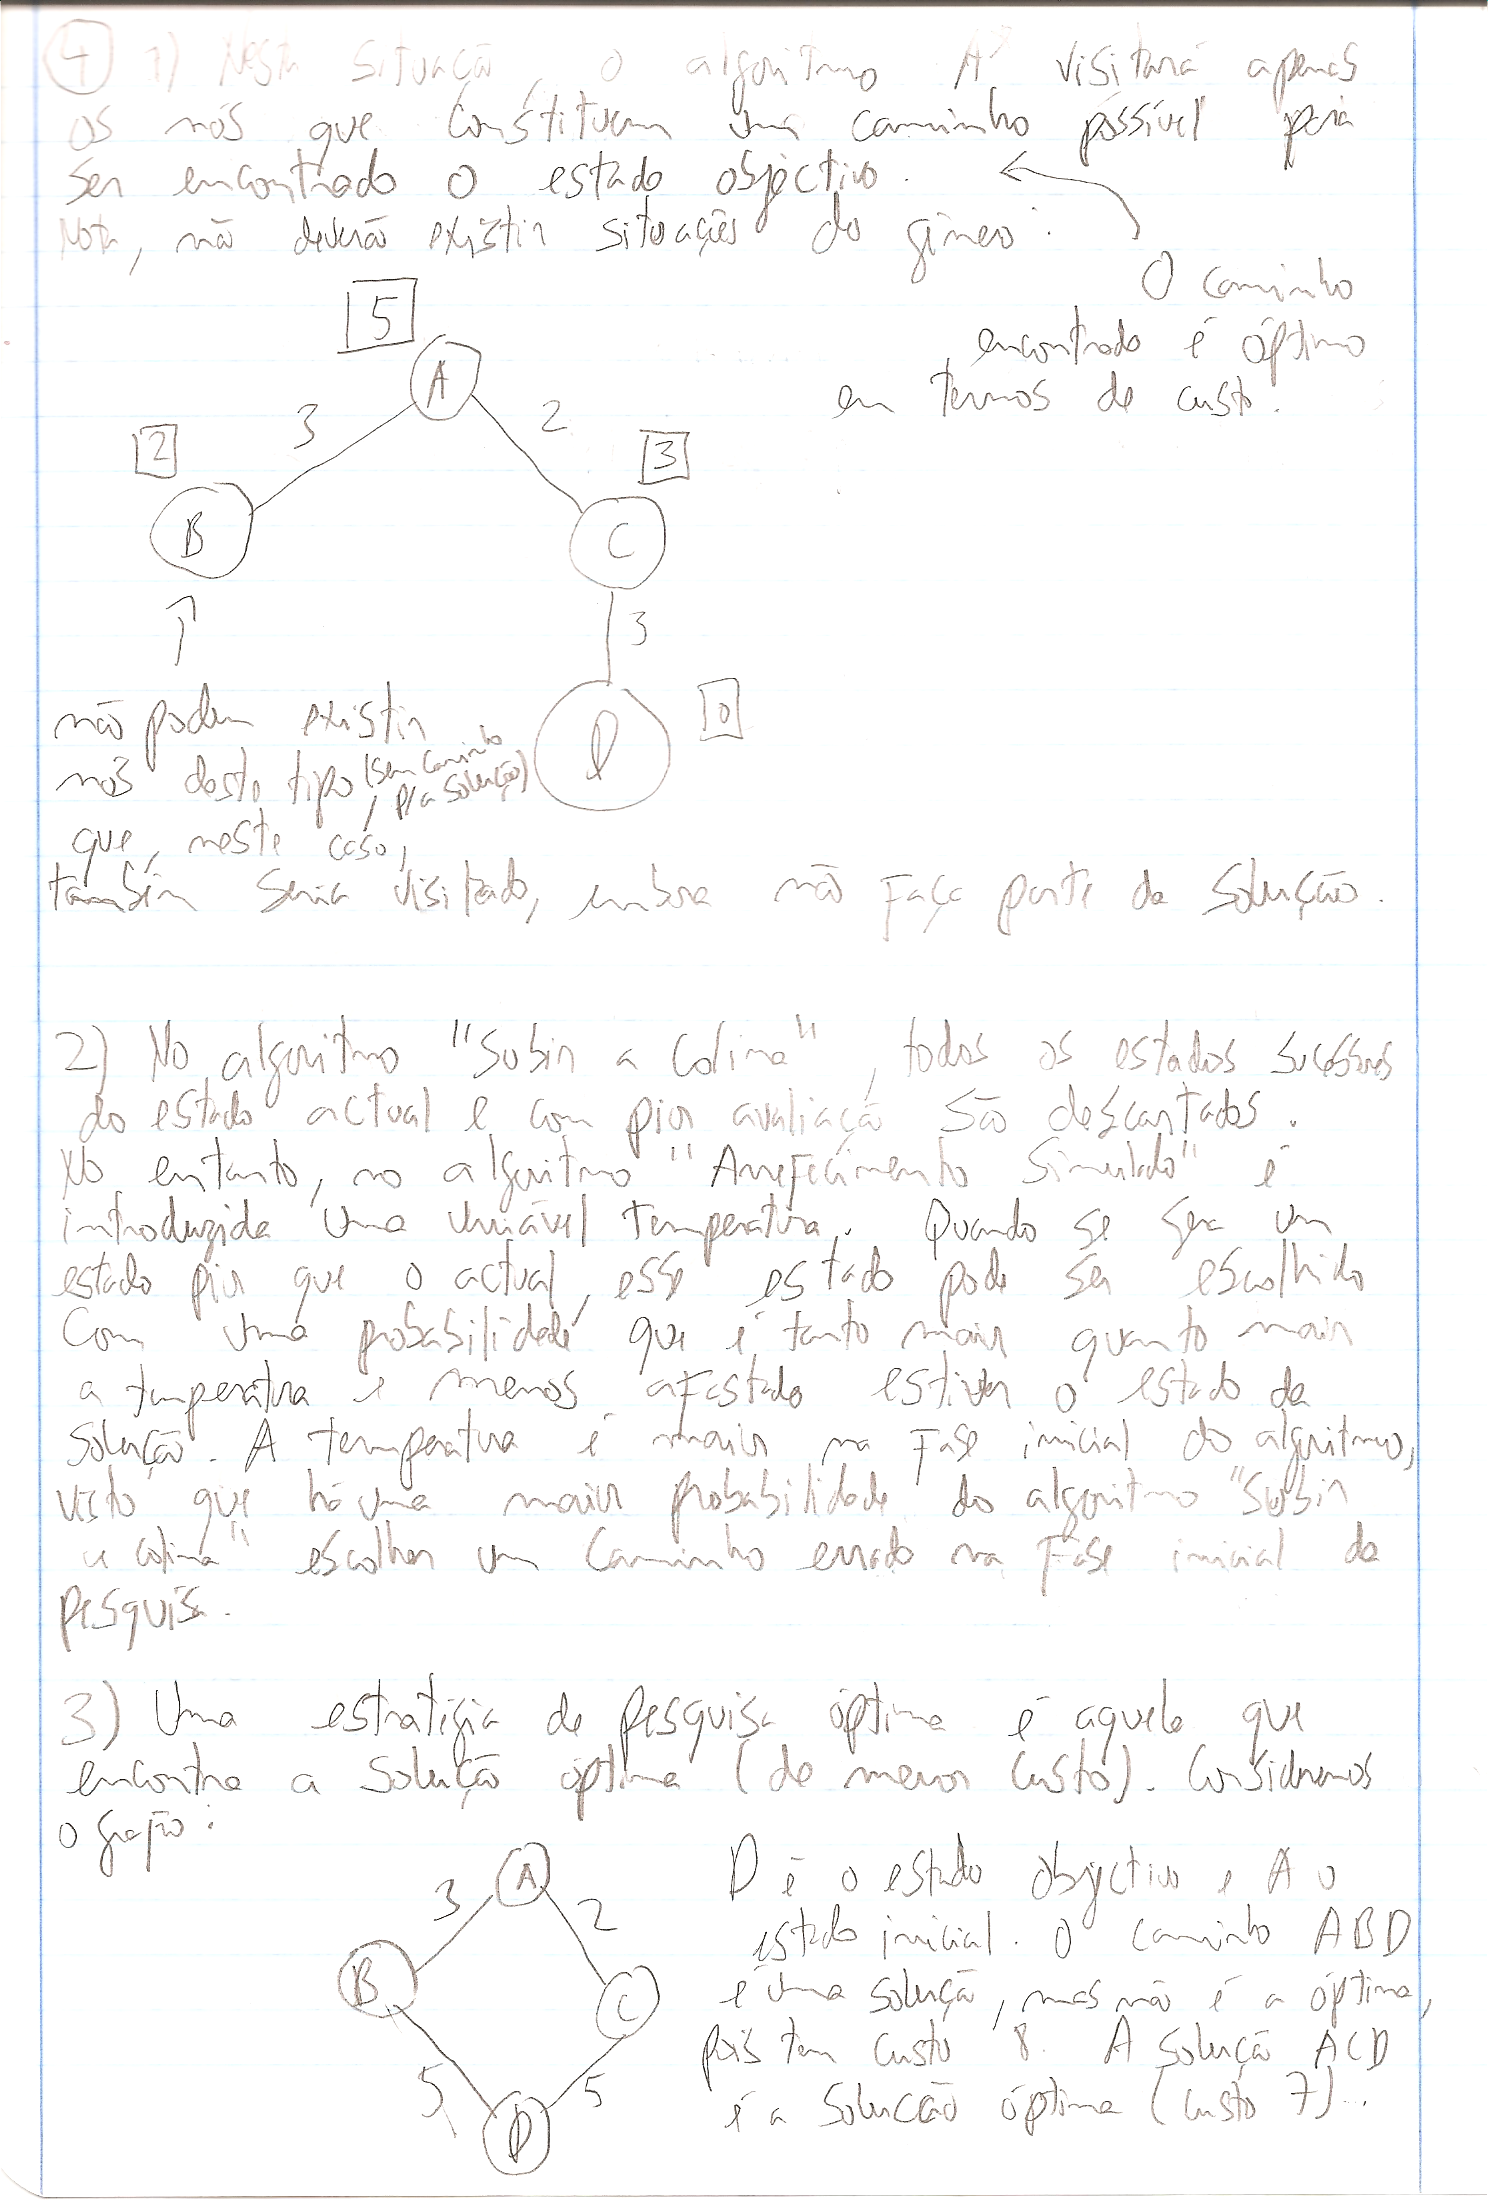 4 1) Nesta situação, o algoritmo A* visitará apenas
os nós que constituem um caminho possível para
ser encontrado o estado objectivo.
Nota, não deverão existir situações do género:
O caminho
encontrado é óptimo
em termos de custo.
5
A
3
2
2
3
B
C
3
D
0
não podem existir
nós deste tipo (sem caminho
p/a solução)
que, neste caso,
também seria visitado, embora não faça parte da solução.
2) No algoritmo "Subir a Colina", todos os estados sucessores
do estado actual e com pior avaliação são descartados.
No entanto, no algoritmo "Arrefecimento Simulado" é
introduzida uma variável temperatura. Quando se gera um
estado pior que o actual, esse estado pode ser escolhido
com uma probabilidade que é tanto maior quanto maior
a temperatura e menos afastado estiver o estado da
solução. A temperatura é maior na fase inicial do algoritmo,
visto que há uma maior probabilidade do algoritmo "Subir
a colina" escolher um caminho errado na fase inicial da
pesquisa.
3) Uma estratégia de pesquisa óptima é aquela que
encontra a solução óptima (de menor custo). Consideremos
o grafo:
A
3
2
B
C
5
5
D
D é o estado objectivo e A o
estado inicial. O caminho ABD
é uma solução, mas não é a óptima,
pois tem custo 8. A solução ACD
é a solução óptima (custo 7)...